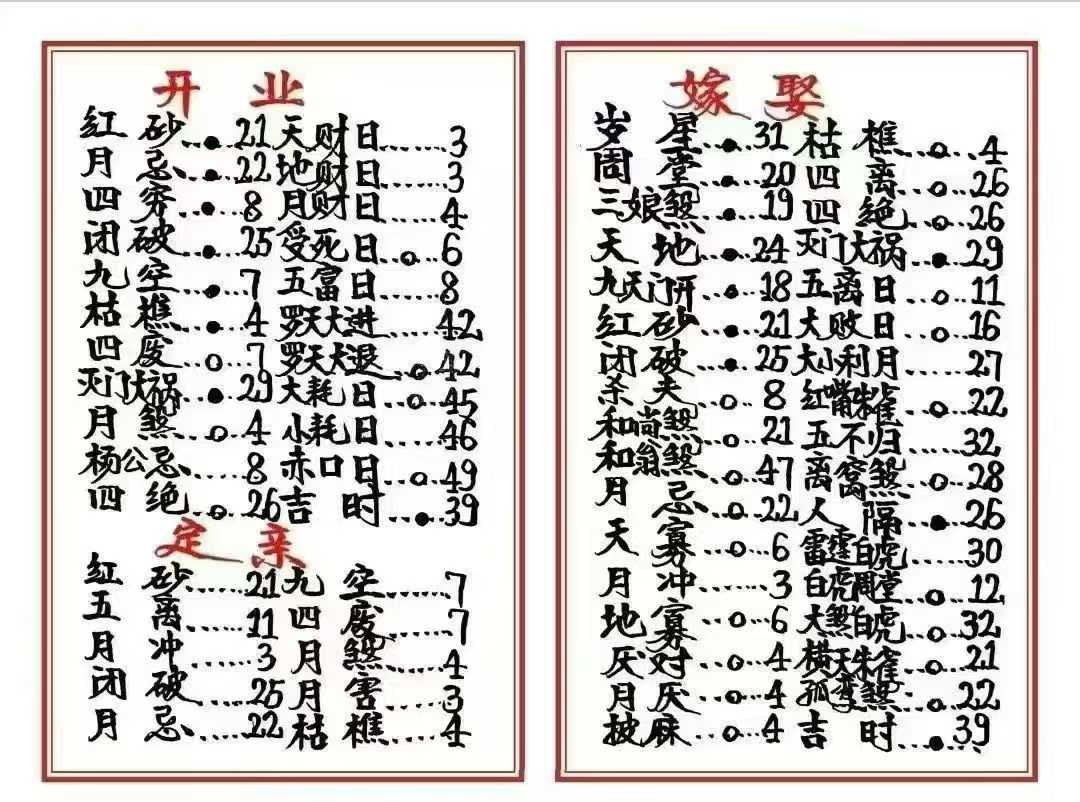 开业
红砂...●...21 天财日......3
月忌...●...22 地财日......3
四穷...●...8 月财日......4
闭破...●...25 受死日..○...6
九空...●...7 五富日......8
枯樵...●...4 罗天大进......42
四废...○...7 罗天大退..○...42
灭门大祸..●...29 大耗日..○...45
月煞...○...4 小耗日......46
杨公忌...○...8 赤口日..○...49
四绝...○...26 吉时...●...39
定亲
红砂......21 九空......7
五离......11 四废......7
月冲......3 月煞......4
闭破......25 月害......3
月忌......22 枯樵......4
嫁娶
岁星...●...31 枯樵...○...4
周堂...●...20 四离...○...26
三娘煞...●...19 四绝...○...26
天地...●...24 灭门大祸...●...29
九天门开...●...18 五离日...○...11
红砂...●...21 大败日...○...16
闭破...●...25 大小利月......27
杀夫...○...8 红嘴朱雀...●...22
和尚煞...○...21 五不归......32
和翁煞...○...47 离窝煞...○...28
月忌...○...22 人隔...●...26
天寡...○...6 雷霆白虎......30
月冲......3 白虎周堂...○...12
地寡...○...6 大煞白虎...○...32
厌对...○...4 横天朱雀...○...21
月厌...○...4 孤鸾煞...○...22
披麻...○...4 吉时...●...39